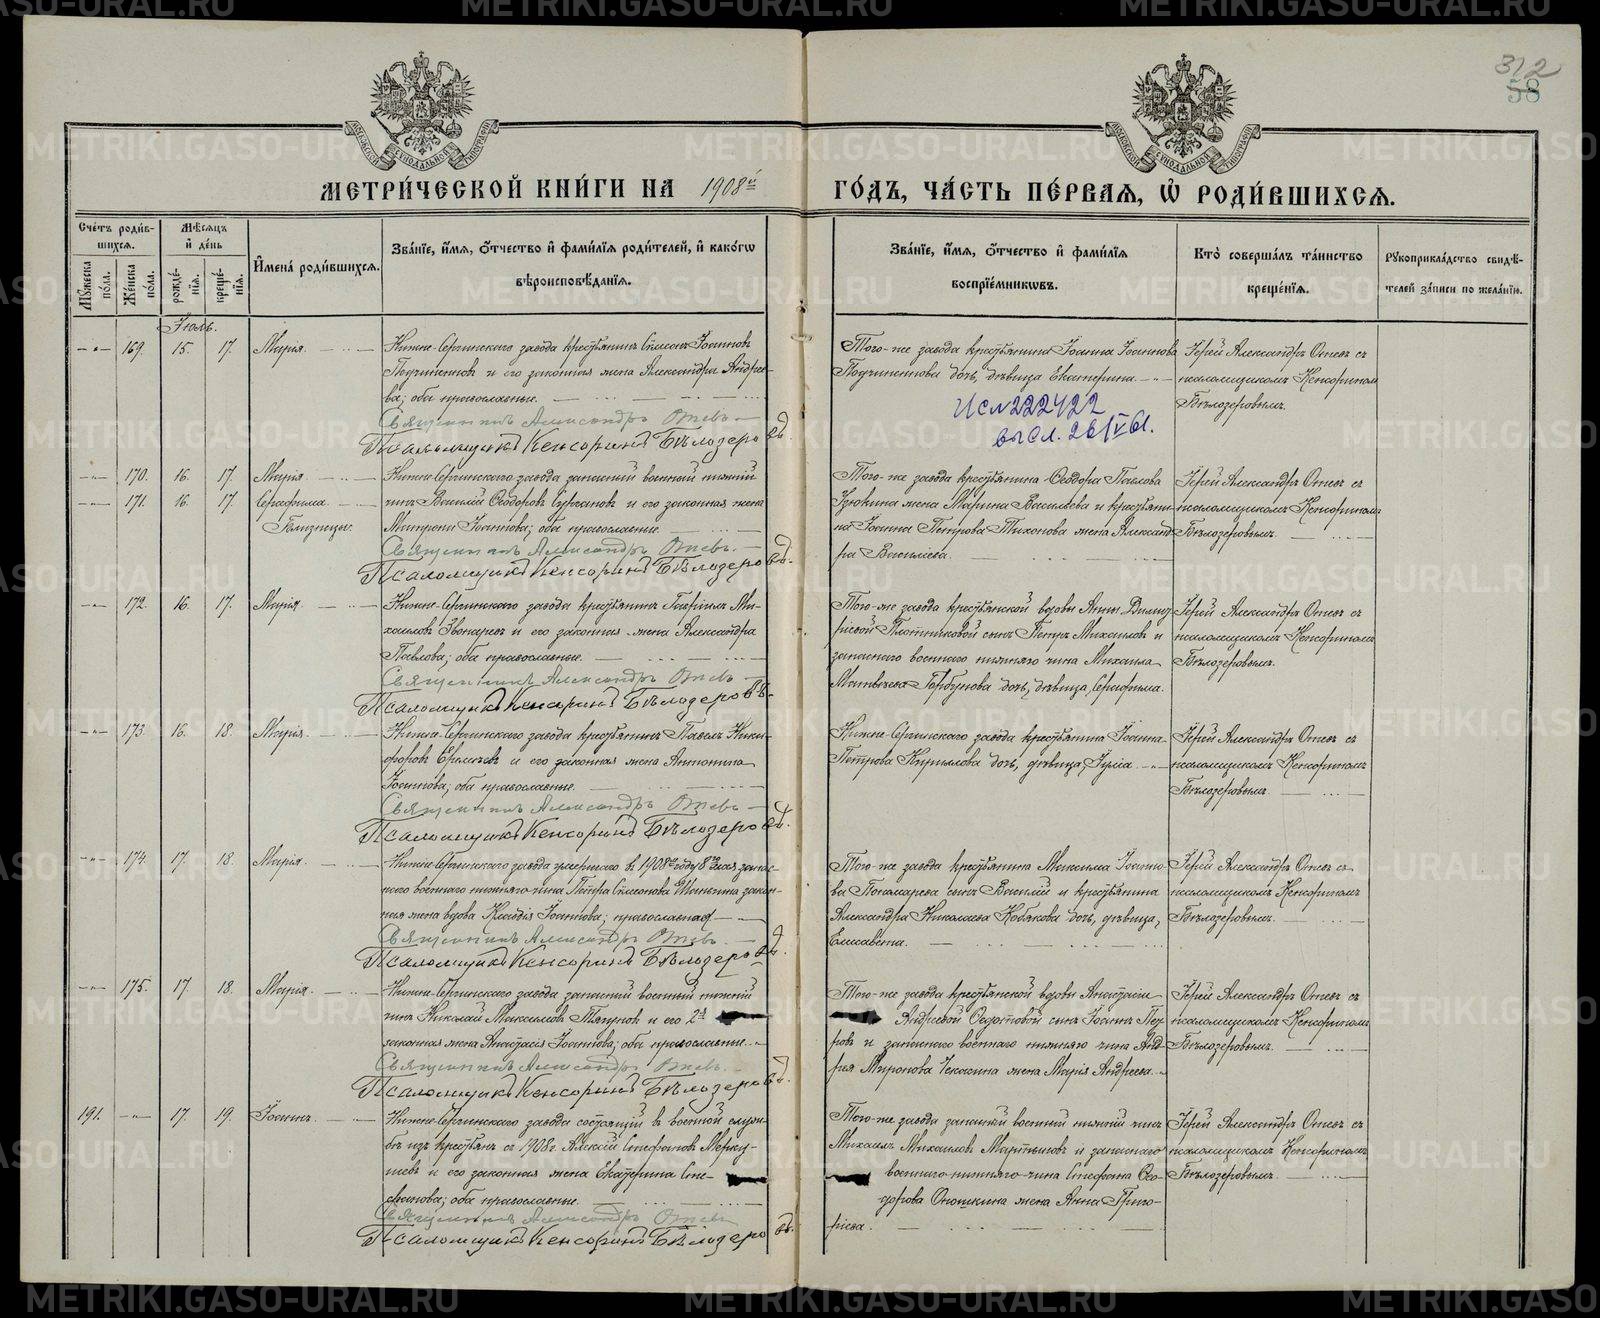 METRIKI.GASO-URAL.RU
312
58
МОСКОВСКОЙ СѴНОДАЛЬНОЙ ТИПОГРАФІИ
МЕТРИ́ЧЕСКОЙ КНИ́ГИ НА 1908й ГО́ДЪ, ЧА́СТЬ ПЕ́РВАЯ, Ѡ҆ РОДИ́ВШИХСЯ.
Сче́тъ роди́в-
шихся.
Му́жеска по́ла.
Же́нска по́ла.
Мѣ́сяцъ и҆ де́нь
рожде́нїя.
креще́нїя.
И҆мена̀ роди́вшихся.
Зва́нїе, и҆́мя, ѻ҆́тчество и҆ фами́лїя роди́телей, и҆ како́гѡ
вѣроисповѣ́данїя.
Зва́нїе, и҆́мя, ѻ҆́тчество и҆ фами́лїя
воспрїе́мникѡвъ.
Кто̀ соверша́лъ та́инство
креще́нїя.
Рукоприкла́дство свидѣ́-
телей за́писи по жела́нїю.
Іюль.
169. 15. 17. Марія.
Нижне-Сергинскаго завода крестьянинъ Симеонъ Іоанновъ
и его законная жена Александра Андрее-
ва; оба православные.
Священникъ Александръ Отевъ
Псаломщикъ Кенсоринъ Бѣлозеровъ.
Того-же завода крестьянина Іоанна Іоаннова
дочь, дѣвица Екатерина.
исл 222422
высл. 26/V 61.
Іерей Александръ Отевъ с
псаломщикомъ Кенсориномъ
Бѣлозеровымъ.
170. 16. 17. Марія.
171. 16. 17. Серафима.
Близнецы.
Нижне-Сергинскаго завода запасный военный нижній
чинъ Василій Ѳеодоровъ и его законная жена
Матрона Іоаннова; оба православные.
Священникъ Александръ Отевъ.
Псаломщикъ Кенсоринъ Бѣлозеровъ.
Того-же завода крестьянина Ѳеодора Павлова
Изюкина жена Марина Васильева и крестьяни-
на Іоанна Петрова Тихонова жена Александ-
ра Васильева.
Іерей Александръ Отевъ с
псаломщикомъ Кенсориномъ
Бѣлозеровымъ.
172. 16. 17. Марія.
Нижне-Сергинскаго завода крестьянинъ Гавріилъ Ми-
хаиловъ Звонаревъ и его законная жена Александра
Павлова; оба православные.
Священникъ Александръ Отевъ
Псаломщикъ Кенсоринъ Бѣлозеровъ.
Того-же завода крестьянской вдовы Анны Димит-
ріевой Плотниковой сынъ Петръ Михаиловъ и
запаснаго военнаго нижняго чина Михаила
Матвѣева Горбунова дочь, дѣвица, Серафима.
Іерей Александръ Отевъ с
псаломщикомъ Кенсориномъ
Бѣлозеровымъ.
173. 16. 18. Марія.
Нижне-Сергинскаго завода крестьянинъ Павелъ Ники-
форовъ и его законная жена Антонина
Іоаннова; оба православные.
Священникъ Александръ Отевъ
Псаломщикъ Кенсоринъ Бѣлозеровъ.
Нижне-Сергинскаго завода крестьянина Іоанна
Петрова Кириллова дочь, дѣвица, Іулія.
Іерей Александръ Отевъ с
псаломщикомъ Кенсориномъ
Бѣлозеровымъ.
174. 17. 18. Марія.
Нижне-Сергинскаго завода умершаго в 1908 году 8 мая запас-
наго военнаго нижняго чина Петра Симеонова закон-
ная жена вдова Клавдія Іоаннова; православная
Священникъ Александръ Отевъ.
Псаломщикъ Кенсоринъ Бѣлозеровъ.
Того-же завода крестьянина Максима Іоанно-
ва Пономарева сынъ Василій и крестьянина
Александра Николаева Кобякова дочь, дѣвица,
Елисавета.
Іерей Александръ Отевъ с
псаломщикомъ Кенсориномъ
Бѣлозеровымъ.
175. 17. 18. Марія.
Нижне-Сергинскаго завода запасный военный нижній
чинъ Николай Максимовъ Тягуновъ и его 2я
законная жена Анастасія Іоаннова; оба православные.
Священникъ Александръ Отевъ.
Псаломщикъ Кенсоринъ Бѣлозеровъ.
Того-же завода крестьянской вдовы Анастасіи
Андреевой Ѳедотовой сынъ Іоаннъ Пет-
ровъ и запаснаго военнаго нижняго чина Анд-
рея Миронова Чекасина жена Марія Андреева.
Іерей Александръ Отевъ с
псаломщикомъ Кенсориномъ
Бѣлозеровымъ.
191. 17. 19. Іоаннъ.
Нижне-Сергинскаго завода состоящій в военной служ-
бѣ изъ крестьянъ с 1908г. Алексій Стефановъ Мерку-
шевъ и его законная жена Екатерина Сте-
фанова; оба православные.
Священникъ Александръ Отевъ
Псаломщикъ Кенсоринъ Бѣлозеровъ.
Того-же завода запасный военный нижній чинъ
Михаилъ Михаиловъ Мартьяновъ и запаснаго
военнаго нижняго чина Стефана Ѳео-
дорова Оношкина жена Анна Григо-
рьева.
Іерей Александръ Отевъ с
псаломщикомъ Кенсориномъ
Бѣлозеровымъ.